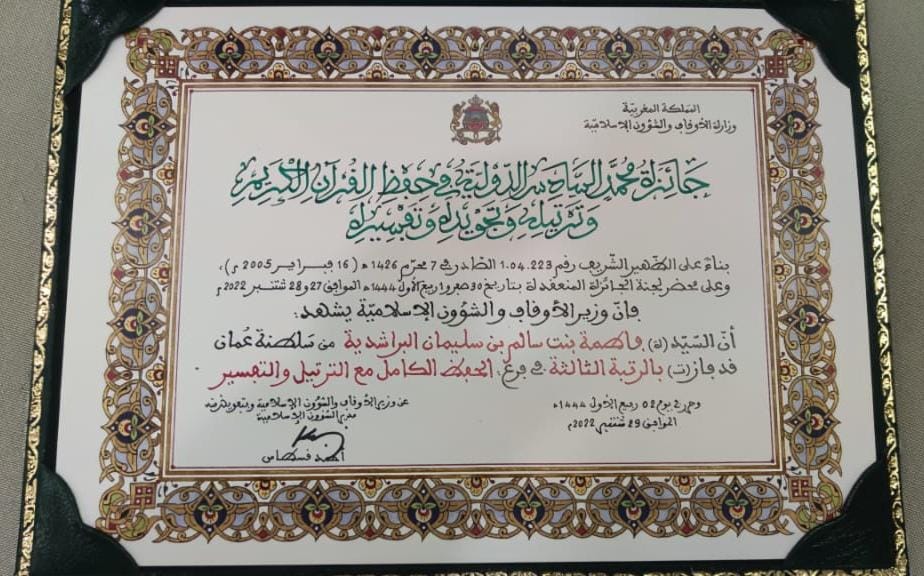 المملكة المغربية
وزارة الأوقاف والشؤون الإسلامية
جائزة محمد السادس الدولية في حفظ القرآن الكريم
وترتيله وتجويده وتفسيره
بناءً على الظهير الشريف رقم 1.04.223 الصادر في 7 محرم 1426 ه (16 فبراير 2005 م)،
وعلى محضر لجنة الجائزة المنعقدة بتاريخ 30 صفر و1 ربيع الأول 1444ه الموافق 27 و28 شتنبر 2022م
فإن وزير الأوقاف والشؤون الإسلامية يشهد:
أن السيد (ة) فاطمة بنت سالم بن سليمان الراشدية من سلطنة عُمان
قد فاز(ت) بالرتبة الثالثة في فرع: الحفظ الكامل مع الترتيل والتفسير
وحرر في يوم 02 ربيع الأول 1444ه
الموافق 29 شتنبر 2022م
عن وزير الأوقاف والشؤون الإسلامية وبتفويض منه
مدير الشؤون الإسلامية
أحمد قسطاس